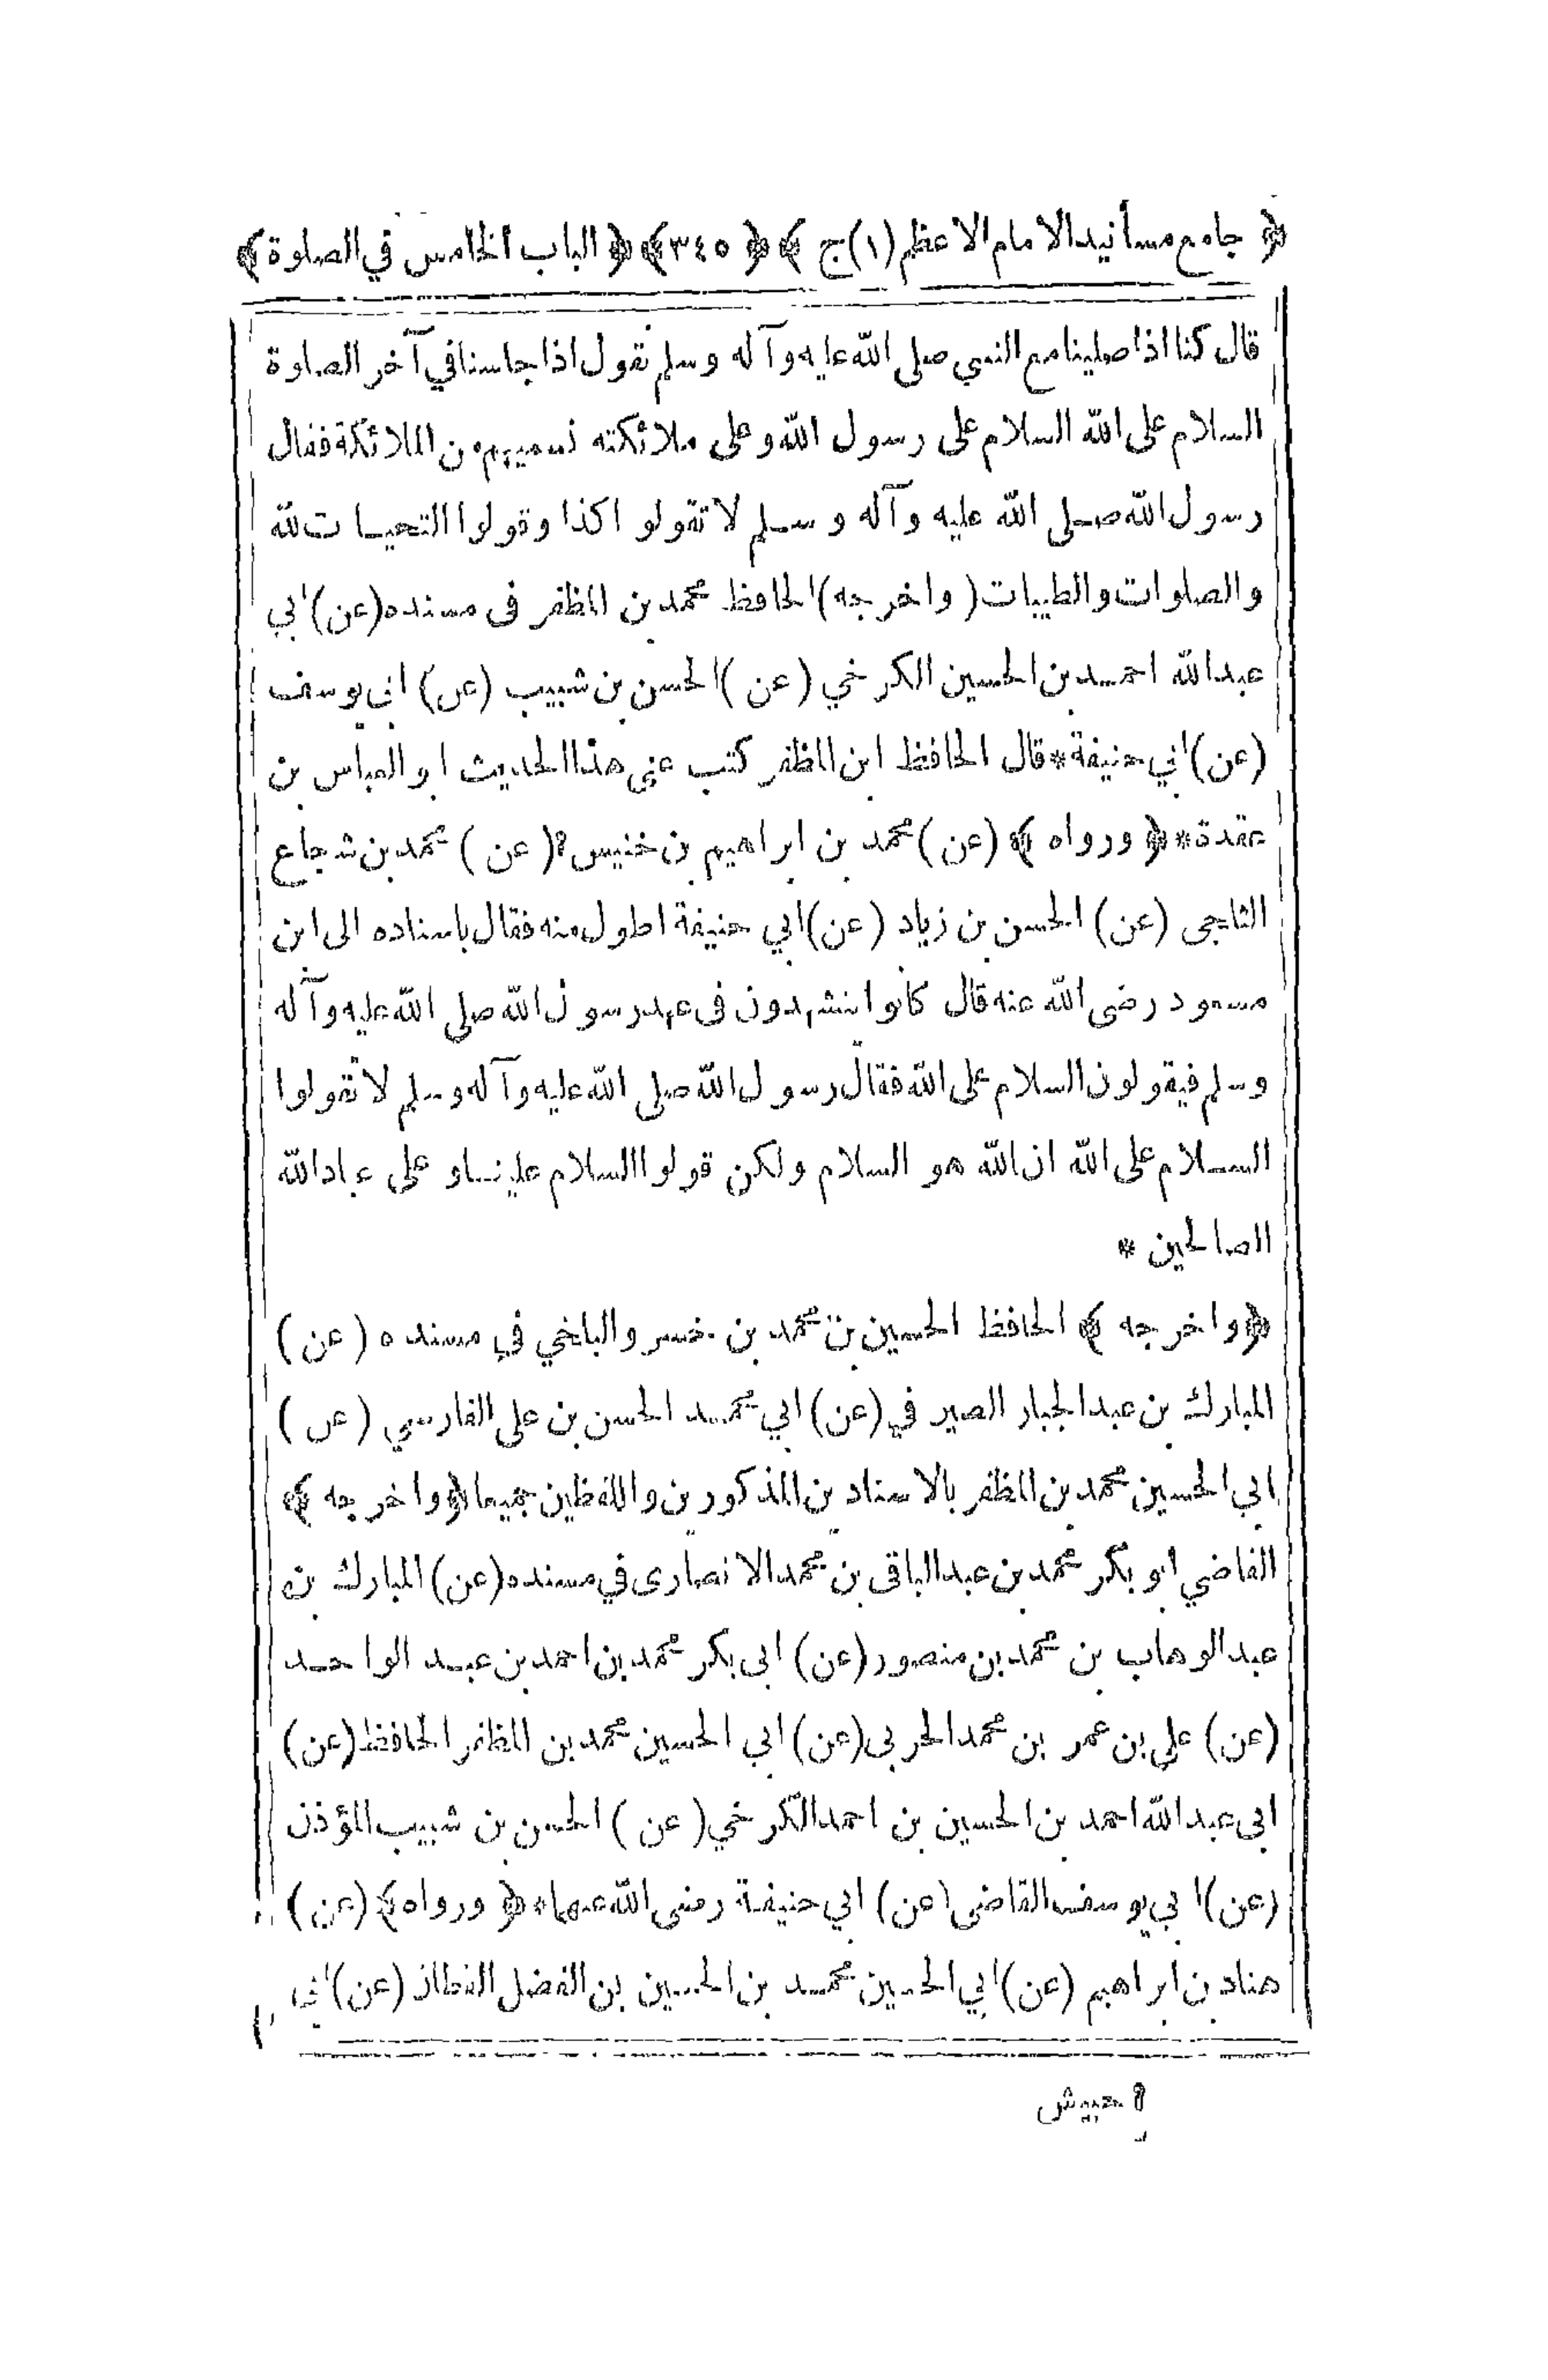 ﴿ جامع مسانيد الامام الاعظم (١) ج ﴾ ﴿ ٣٤٥ ﴾ ﴿ الباب الخامس في الصلوة ﴾
قال كنا اذا صلينا مع النبي صلى الله عليه وآله وسلم نقول اذا جلسنا في آخر الصلوة
السلام على الله السلام على رسول الله وعلى ملائكته نسميهم من الملائكة فقال
رسول الله صلى الله عليه وآله وسلم لا تقولوا كذا وقولوا التحيات لله
والصلوات والطيبات (واخرجه) الحافظ محمد بن المظفر فى مسنده (عن) ابي
عبد الله احمد بن الحسين الكرخي (عن) الحسن بن شبيب (عن) ابي يوسف
(عن) ابي حنيفة * قال الحافظ ابن المظفر كتب عني هذا الحديث ابو العباس بن
عقدة * ﴿ ورواه ﴾ (عن) محمد بن ابراهيم بن خنيس؟ (عن) محمد بن شجاع
الثلجى (عن) الحسن بن زياد (عن) ابي حنيفة اطول منه فقال باسناده الى ابن
مسعود رضى الله عنه قال كانوا يتشهدون فى عهد رسول الله صلى الله عليه وآله
وسلم فيقولون السلام على الله فقال رسول الله صلى الله عليه وآله وسلم لا تقولوا
السلام على الله ان الله هو السلام ولكن قولوا السلام علينا وعلى عباد الله
الصالحين *
﴿ واخرجه ﴾ الحافظ الحسين بن محمد بن خسرو البلخي في مسنده (عن)
المبارك بن عبد الجبار الصيرفي (عن) ابي محمد الحسن بن على الفارسي (عن)
ابي الحسين محمد بن المظفر بالاسنادين المذكورين واللفظين جميعا ﴿ واخرجه ﴾
القاضي ابو بكر محمد بن عبد الباقى بن محمد الانصارى في مسنده (عن) المبارك بن
عبد الوهاب بن محمد بن منصور (عن) ابى بكر محمد بن احمد بن عبد الواحد
(عن) على بن عمر بن محمد الحربى (عن) ابي الحسين محمد بن المظفر الحافظ (عن)
ابى عبد الله احمد بن الحسين بن احمد الكرخي (عن) الحسن بن شبيب المؤذن
(عن) ابي يوسف القاضى (عن) ابي حنيفة رضى الله عنهما * ﴿ ورواه ﴾ (عن)
هناد بن ابراهيم (عن) ابي الحسين محمد بن الحسين بن الفضل القطان (عن) ابي
؟ حبيش